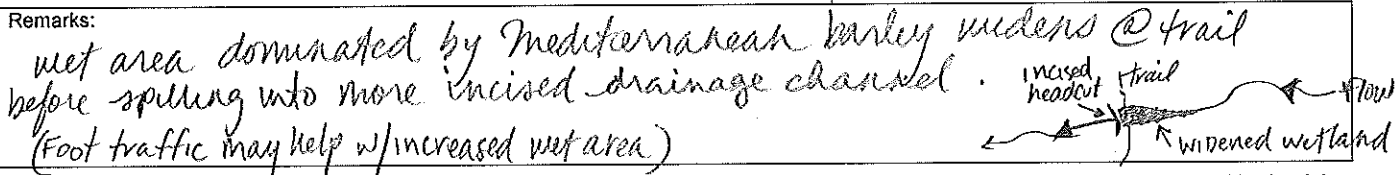 Remarks:
wet area dominated by Mediterranean barley widens @ trail
before spilling into more incised drainage channel.
(Foot traffic may help w/increased wet area)
incised headcut
trail
Flow
widened wetland